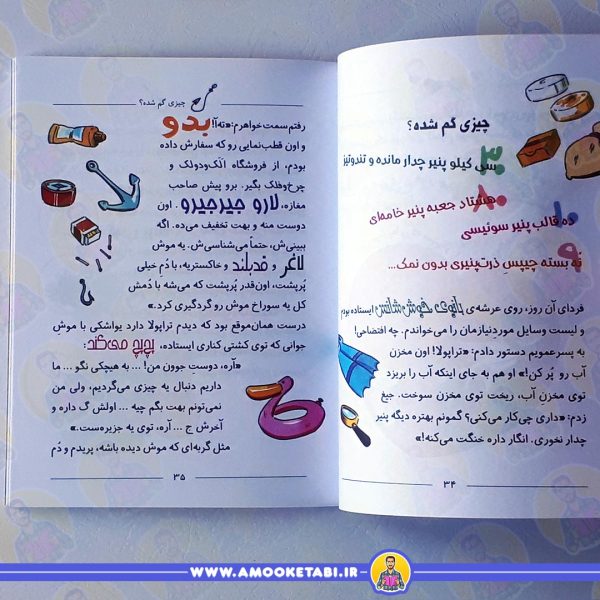 چیزی گم شده؟
۳۰
سی کیلو پنیر چدار مانده و تندوتیز
۸۰
هشتاد جعبه پنیر خامه‌ای
۱۰
ده قالب پنیر سوئیسی
۹
نُه بسته چیپس ذرت‌پنیری بدون نمک...
فردای آن روز، روی عرشه‌ی بانوی خوش‌شانس ایستاده بودم
و لیست وسایل موردنیازمان را می‌خواندم. چه افتضاحی!
به پسرعمویم دستور دادم: «تراپولا! اون مخزن
آب رو پُر کن!» او هم به جای اینکه آب را بریزد
توی مخزنِ آب، ریخت توی مخزن سوخت. جیغ
زدم: «داری چی‌کار می‌کنی؟ گمونم بهتره دیگه پنیر
چدار نخوری. انگار داره خنگت می‌کنه!»
۳۴
چیزی گم شده؟
رفتم سمت خواهرم: «ته‌آ! بدو
و اون قطب‌نمایی رو که سفارش داده
بودم، از فروشگاه الَک‌ودولک و
چرخ‌وفلک بگیر. برو پیش صاحب
مغازه، لارو جیرجیرو. اون
دوست منه و بهت تخفیف می‌ده. اگه
ببینی‌ش، حتماً می‌شناسی‌ش. یه موش
لاغر و قدبلند و خاکستریه، با دُم خیلی
پُرپشت، اون‌قدر پُرپشت که می‌شه با دُمش
کل یه سوراخ موش رو گردگیری کرد.»
درست همان‌موقع بود که دیدم تراپولا دارد یواشکی با موشِ
جوانی که توی کشتی کناری ایستاده، پچ‌پچ می‌کند:
«آره، دوستِ جوون من! ... به هیچکی نگو ... ما
داریم دنبال یه چیزی می‌گردیم، ولی من
نمی‌تونم بهت بگم چیه ... اولش گ داره و
آخرش ج ... آره، توی یه جزیره‌ست.»
مثل گربه‌ای که موش دیده باشه، پریدم و دُم
۳۵
WWW.AMOOKETABI.IR